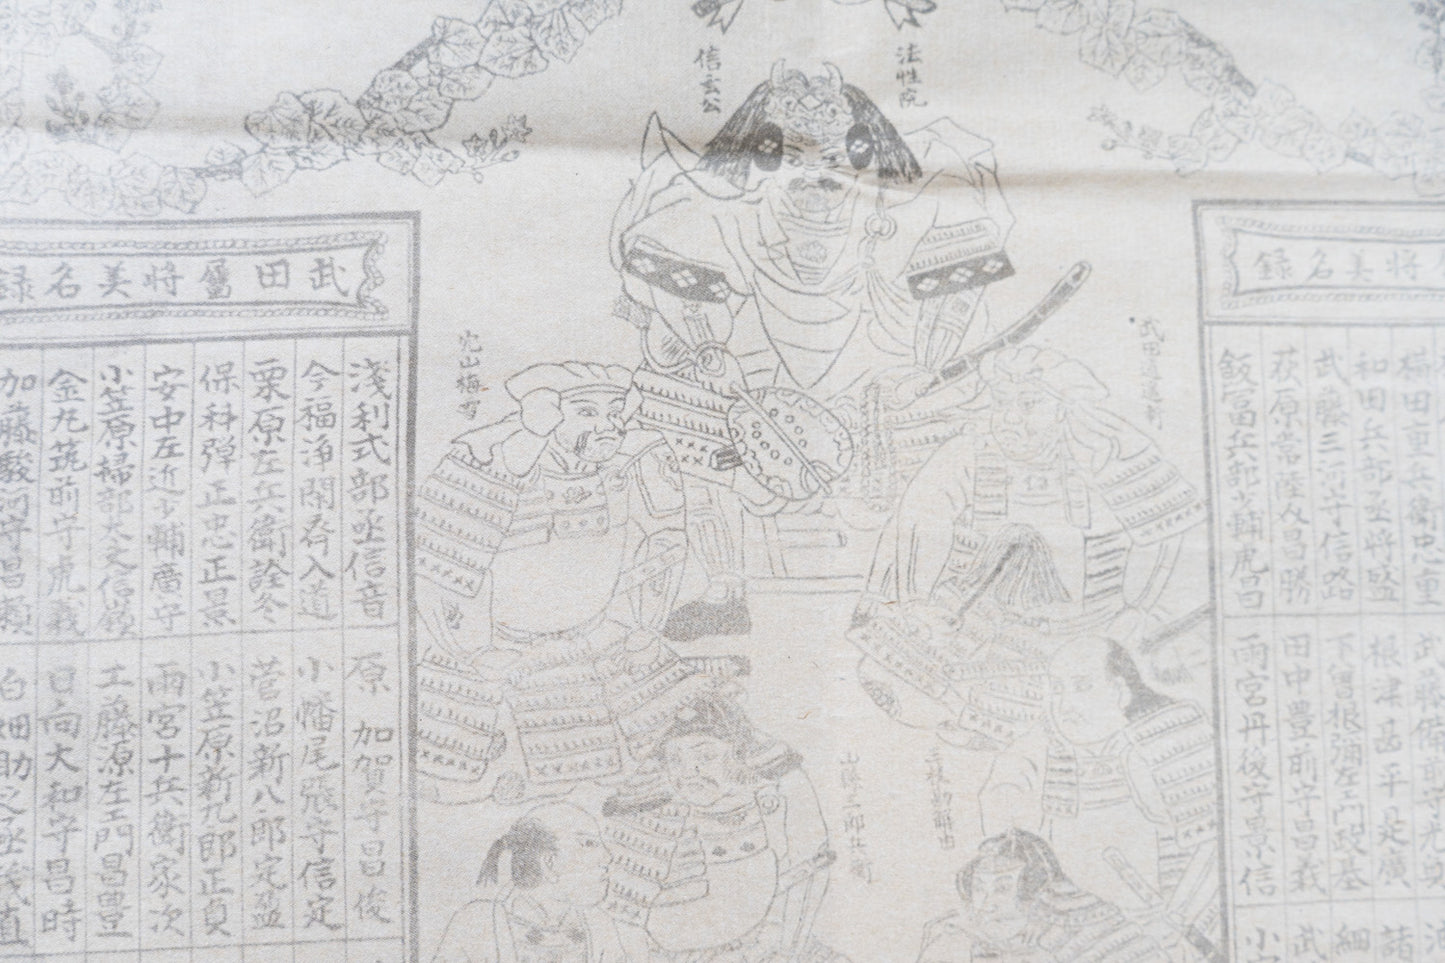 法性院
信玄公
録名美将属田武
録名美将
浅利式部丞信音
今福浄閑斎入道
栗原左兵衛詮冬
保科弾正忠正景
安中左近少輔廣守
小笠原掃部大夫信嶺
金丸筑前守虎義
加藤駿河守昌頼
原 加賀守昌俊
小幡尾張守信定
菅沼新八郎定盈
小笠原新九郎正貞
雨宮十兵衛家次
工藤源左エ門昌豊
日向大和守昌時
白畑助之丞義直
武藤三河守信略
荻原常陸介昌勝
飯富兵部少輔虎昌
和田兵部丞将盛
田重兵衛忠重
武藤備前守光
根津甚平是廣
下曽根彌左エ門政基
田中豊前守昌義
雨宮丹後守景信
諸
細
武
小
山縣三郎兵衛